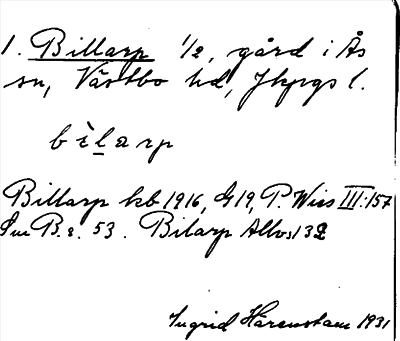 1. Billarp 1/2, gård i Ås
sn, Västbo hd, Jkpgs l.
bìlarp
Billarp kb 1916, G19, P. Wies III:157
Sm B. s. 53. Bilarp Allvs132
Ingrid Härenstam 1931